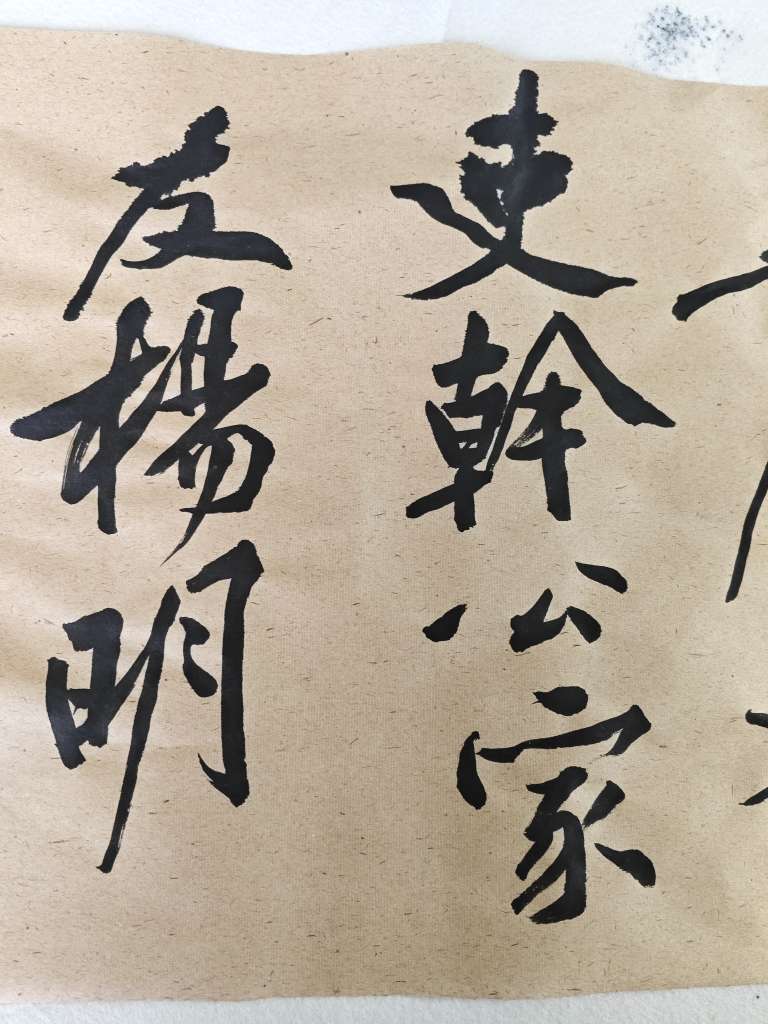 吏幹公家
友楊明